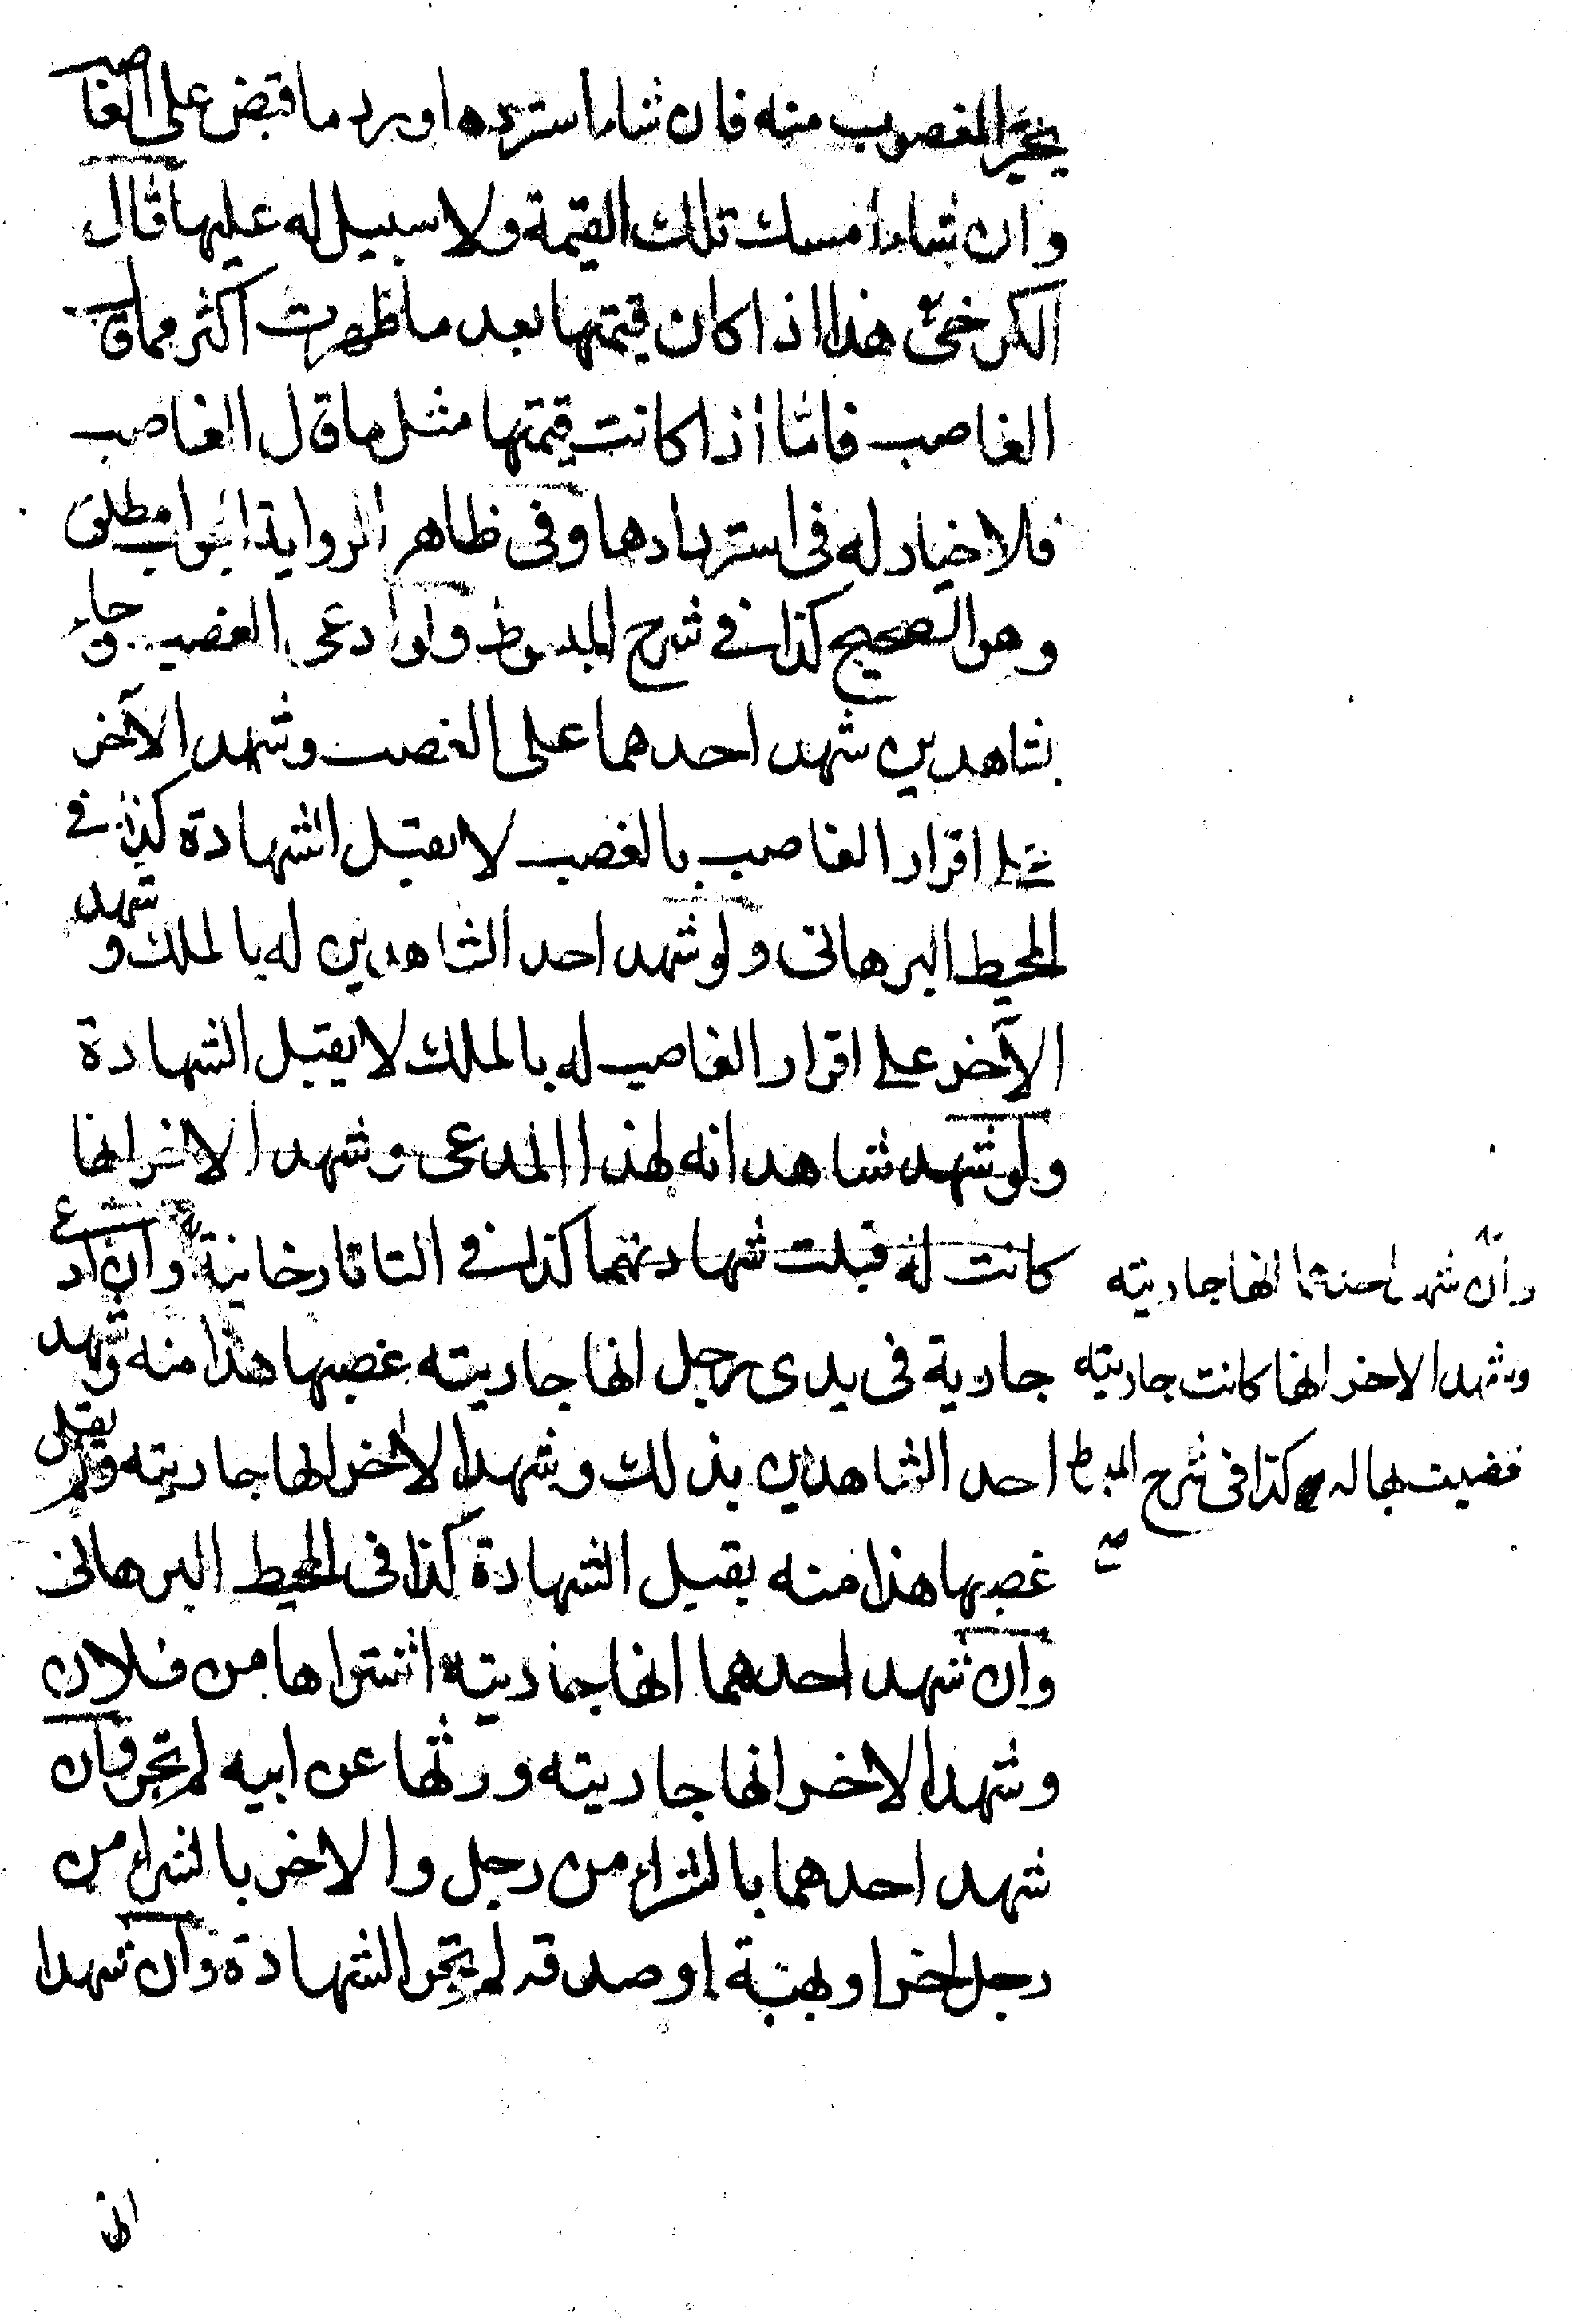 يخير المغصوب منه فان شاء استردها ورد ما قبض على الغاصب
وان شاء امسك تلك القيمة ولا سبيل له عليها قال
الكرخى هذا اذا كان قيمتها بعد ما ظهرت اكثر مما قال
الغاصب فاما اذا كانت قيمتها مثل ما قال الغاصب
فلا خيار له فى استردادها وفى ظاهر الرواية الجواب مطلق
وهو الصحيح كذا فى شرح المبسوط ولو ادعى الغصب وجاء
بشاهدين شهد احدهما على الغصب وشهد الآخر
على اقرار الغاصب بالغصب لا يقبل الشهادة كذا فى
المحيط البرهانى ولو شهد احد الشاهدين له بالملك وشهد
الآخر على اقرار الغاصب له بالملك لا يقبل الشهادة
ولو شهد شاهد انه لهذا المدعى وشهد الاخر انها
كانت له قبلت شهادتهما كذا فى التاتارخانية وان ادعى
جارية فى يدى رجل انها جاريته غصبها هذا منه وشهد
احد الشاهدين بذلك وشهد الاخر انها جاريته ولم يقل
غصبها هذا منه يقبل الشهادة كذا فى المحيط البرهانى
وان شهد احدهما انها جاريته اشتراها من فلان
وشهد الاخر انها جاريته ورثها عن ابيه لم تجز وان
شهد احدهما بالشراء من رجل والاخر بالشراء من
رجل اخر او بهبة او صدقة لم تجز الشهادة وان شهدا
وان شهد احدهما انها جاريته
وشهد الاخر انها كانت جاريته
قضيت بها له كذا فى شرح المبسوط
صح